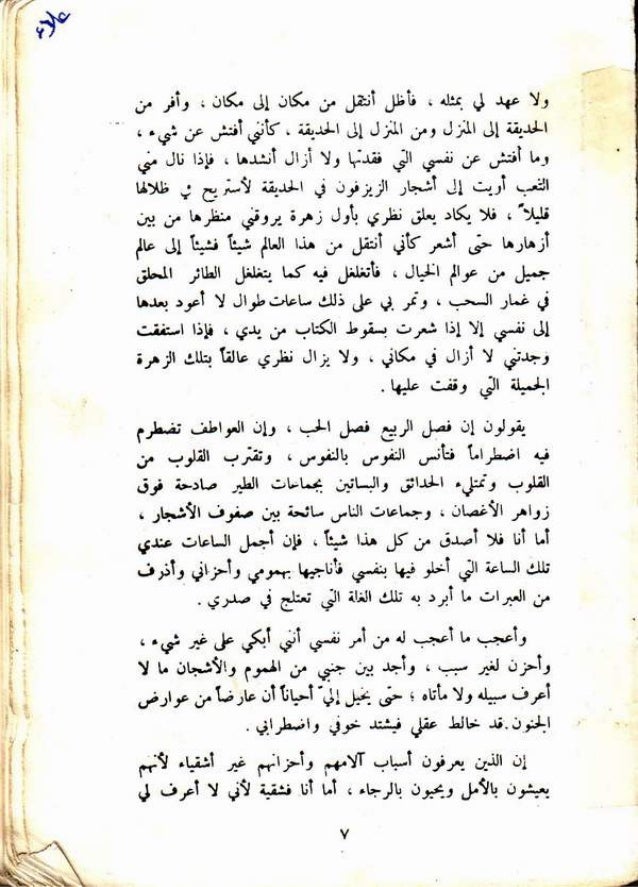 علاء
ولا عهد لي بمثله ، فأظل أنتقل من مكان إلى مكان ، وأفر من
الحديقة إلى المنزل ومن المنزل إلى الحديقة ، كأنني أفتش عن شيء ،
وما أفتش عن نفسي التي فقدتها ولا أزال أنشدها ، فإذا نال مني
التعب أويت إلى أشجار الزيزفون في الحديقة لأستريح في ظلالها
قليلاً ، فلا يكاد يعلق نظري بأول زهرة يروقني منظرها من بين
أزهارها حتى أشعر كأني أنتقل من هذا العالم شيئاً فشيئاً إلى عالم
جميل من عوالم الخيال ، فأتغلغل فيه كما يتغلغل الطائر المحلق
في غمار السحب ، وتمر بي على ذلك ساعات طوال لا أعود بعدها
إلى نفسي إلا إذا شعرت بسقوط الكتاب من يدي ، فإذا استفقت
وجدتني لا أزال في مكاني ، ولا يزال نظري عالقاً بتلك الزهرة
الجميلة التي وقفت عليها .
يقولون إن فصل الربيع فصل الحب ، وإن العواطف تضطرم
فيه اضطراماً فتأنس النفوس بالنفوس ، وتقترب القلوب من
القلوب وتمتليء الحدائق والبساتين بجماعات الطير صادحة فوق
زواهر الأغصان ، وجماعات الناس سائحة بين صفوف الأشجار ،
أما أنا فلا أصدق من كل هذا شيئاً ، فإن أجمل الساعات عندي
تلك الساعة التي أخلو فيها بنفسي فأناجيها بهمومي وأحزاني وأذرف
من العبرات ما أبرد به تلك الغلة التي تعتلج في صدري .
وأعجب ما أعجب له من أمر نفسي أنني أبكي على غير شيء ،
وأحزن لغير سبب ، وأجد بين جنبي من الهموم والأشجان ما لا
أعرف سبيله ولا مأتاه ؛ حتى يخيل إليّ أحياناً أن عارضاً من عوارض
الجنون قد خالط عقلي فيشتد خوفي واضطرابي .
إن الذين يعرفون أسباب آلامهم وأحزانهم غير أشقياء لأنهم
يعيشون بالأمل ويحيون بالرجاء ، أما أنا فشقية لأني لا أعرف لي
٧